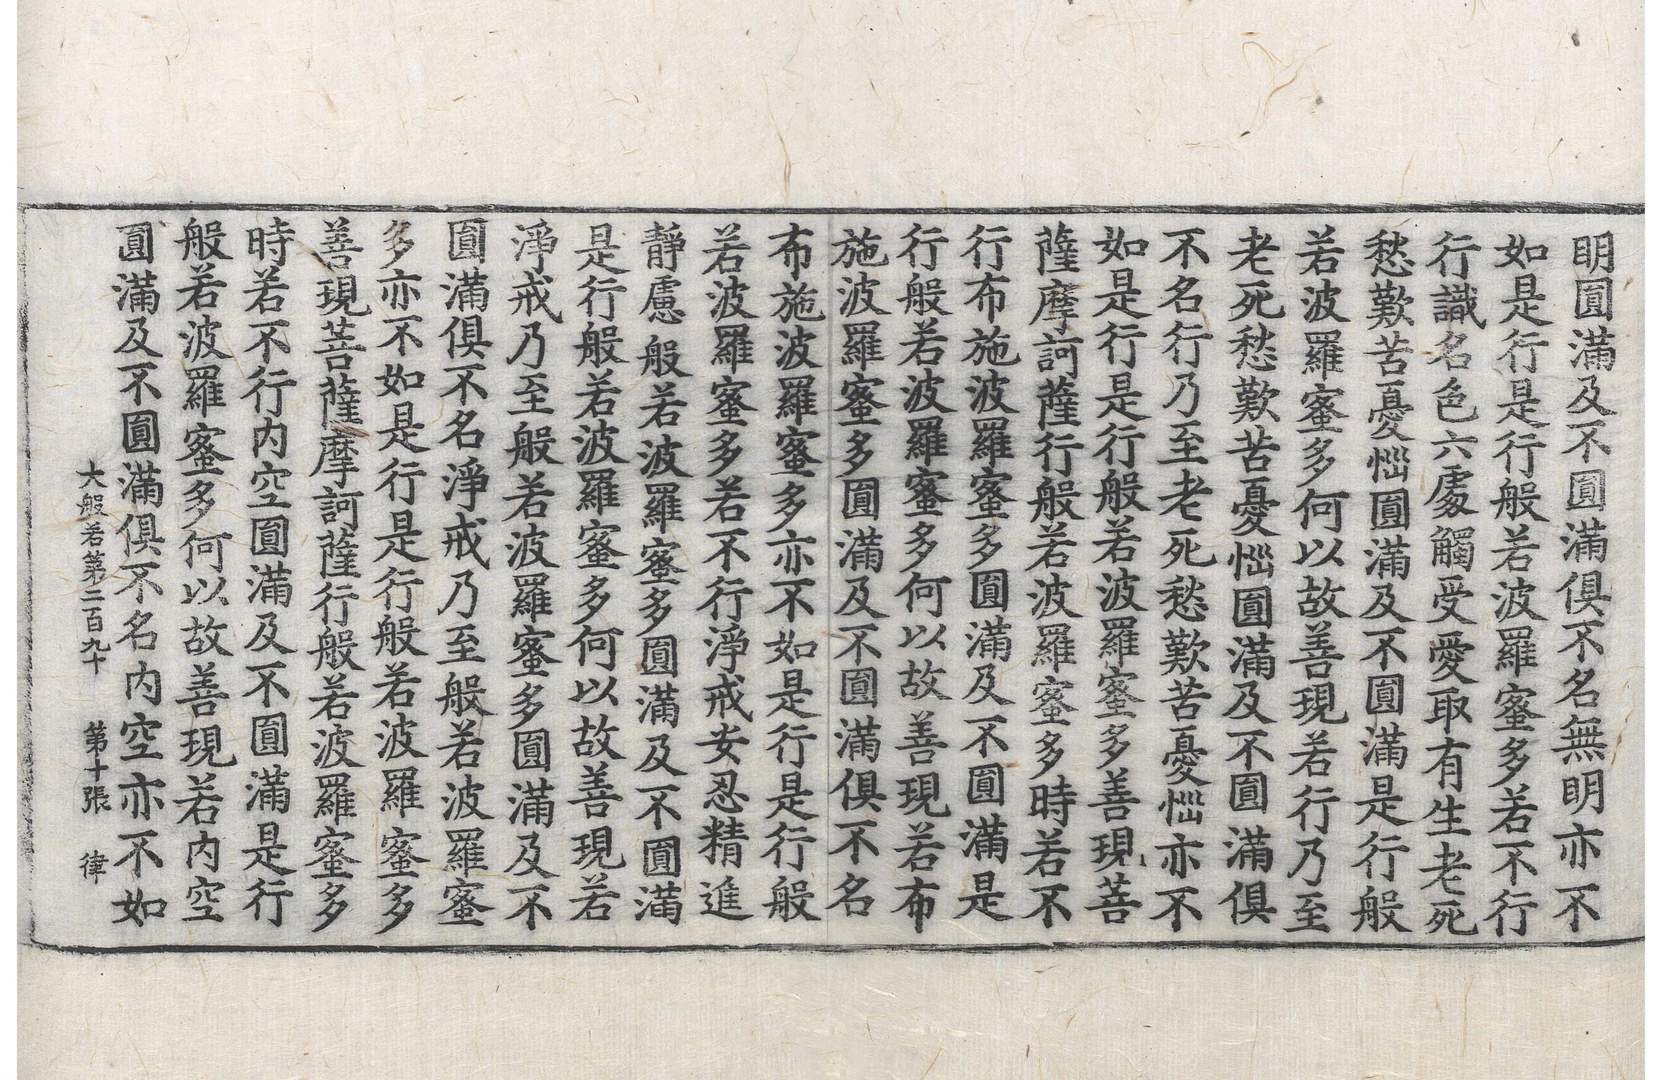 明圎滿及不圎滿俱不名無明亦不
如是行是行般若波羅蜜多若不行
行識名色六處觸受愛取有生老死
愁歎苦憂惱圎滿及不圎滿是行般
若波羅蜜多何以故善現若行乃至
老死愁歎苦憂惱圎滿及不圎滿俱
不名行乃至老死愁歎苦憂惱亦不
如是行是行般若波羅蜜多善現菩
薩摩訶薩行般若波羅蜜多時若不
行布施波羅蜜多圎滿及不圎滿是
行般若波羅蜜多何以故善現若布
施波羅蜜多圎滿及不圎滿俱不名
布施波羅蜜多亦不如是行是行般
若波羅蜜多若不行淨戒安忍精進
靜慮般若波羅蜜多圎滿及不圎滿
是行般若波羅蜜多何以故善現若
淨戒乃至般若波羅蜜多圎滿及不
圎滿俱不名淨戒乃至般若波羅蜜
多亦不如是行是行般若波羅蜜多
善現菩薩摩訶薩行般若波羅蜜多
時若不行內空圎滿及不圎滿是行
般若波羅蜜多何以故善現若內空
圎滿及不圎滿俱不名內空亦不如
大般若第二百九十 第十張 律